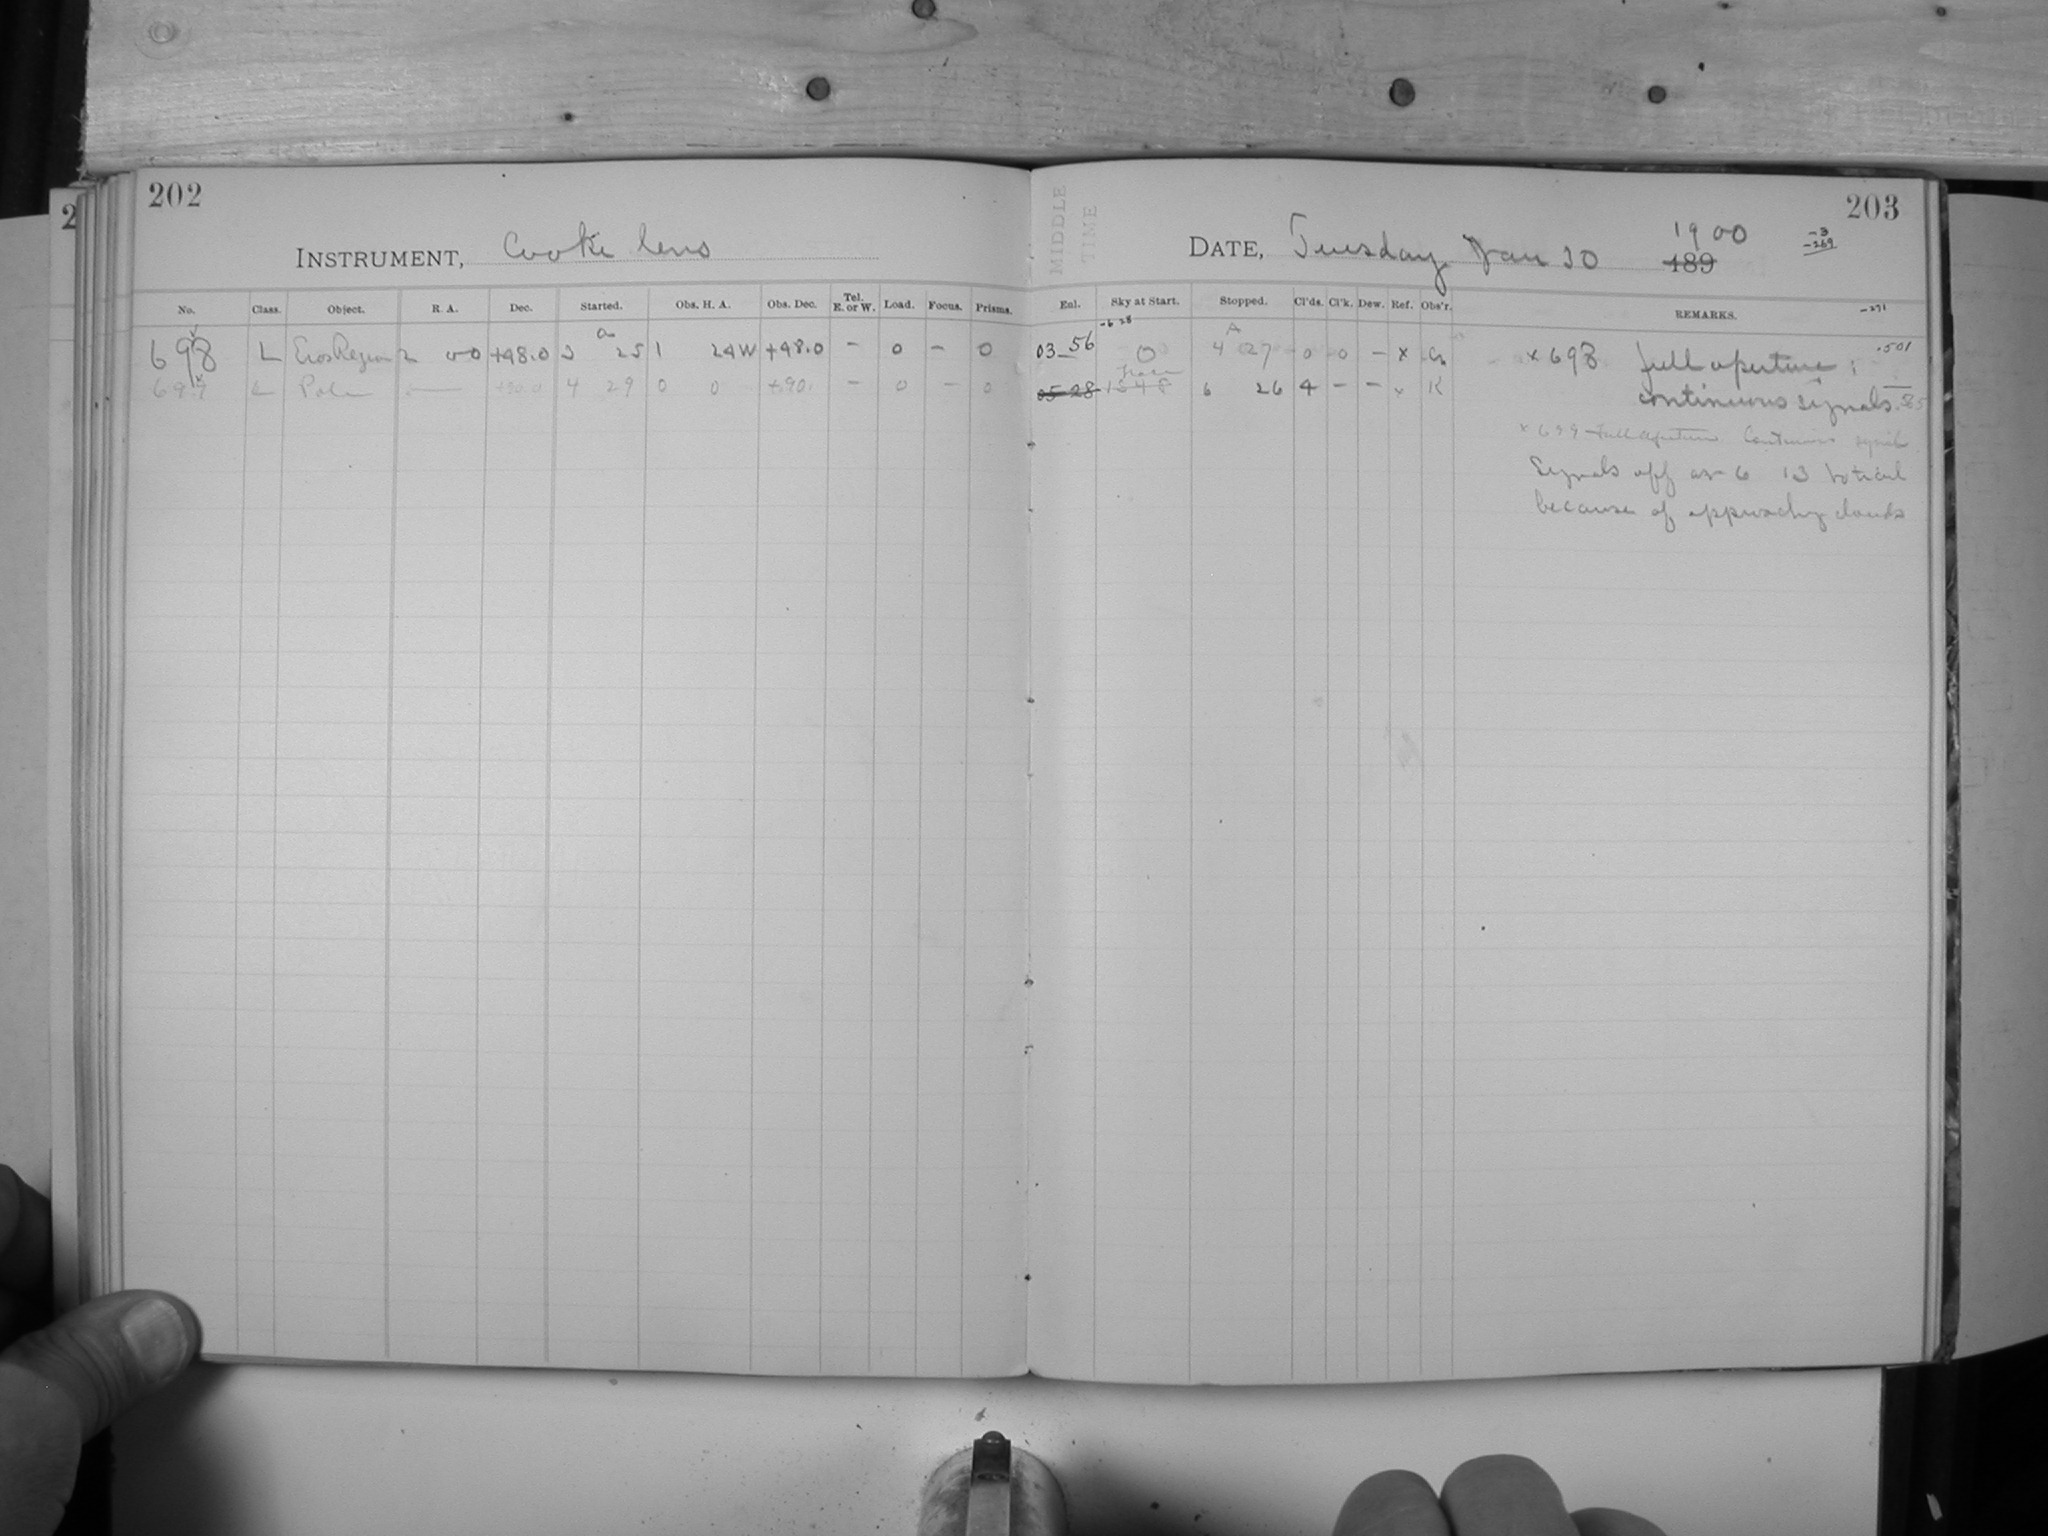 202
INSTRUMENT, Cooke lens
No. Class. Object. R. A. Dec. Started. Obs. H. A. Obs. Dec. Tel. E. or W. Load. Focus. Prisms.
698 L Eros Region 2 00 +48.0 3 25 1 24W +48.0 - 0 - 0
699 L Pole — +90.0 4 29 0 0 +90. - 0 - 0
2
MIDDLE
TIME
203
DATE, Tuesday Jan 30 1900
189
-3
-269
-271
Enl. Sky at Start. Stopped. Cl'ds. Cl'k. Dew. Ref. Obs'r. REMARKS.
-6 28
03_56 0 4 27 0 0 - x x 698 full aperture; .501
05 28 1548 6 26 4 - - x K continuous signals.
x 699 Full aperture. Continuous
Signals off at 6 13
because of approaching clouds